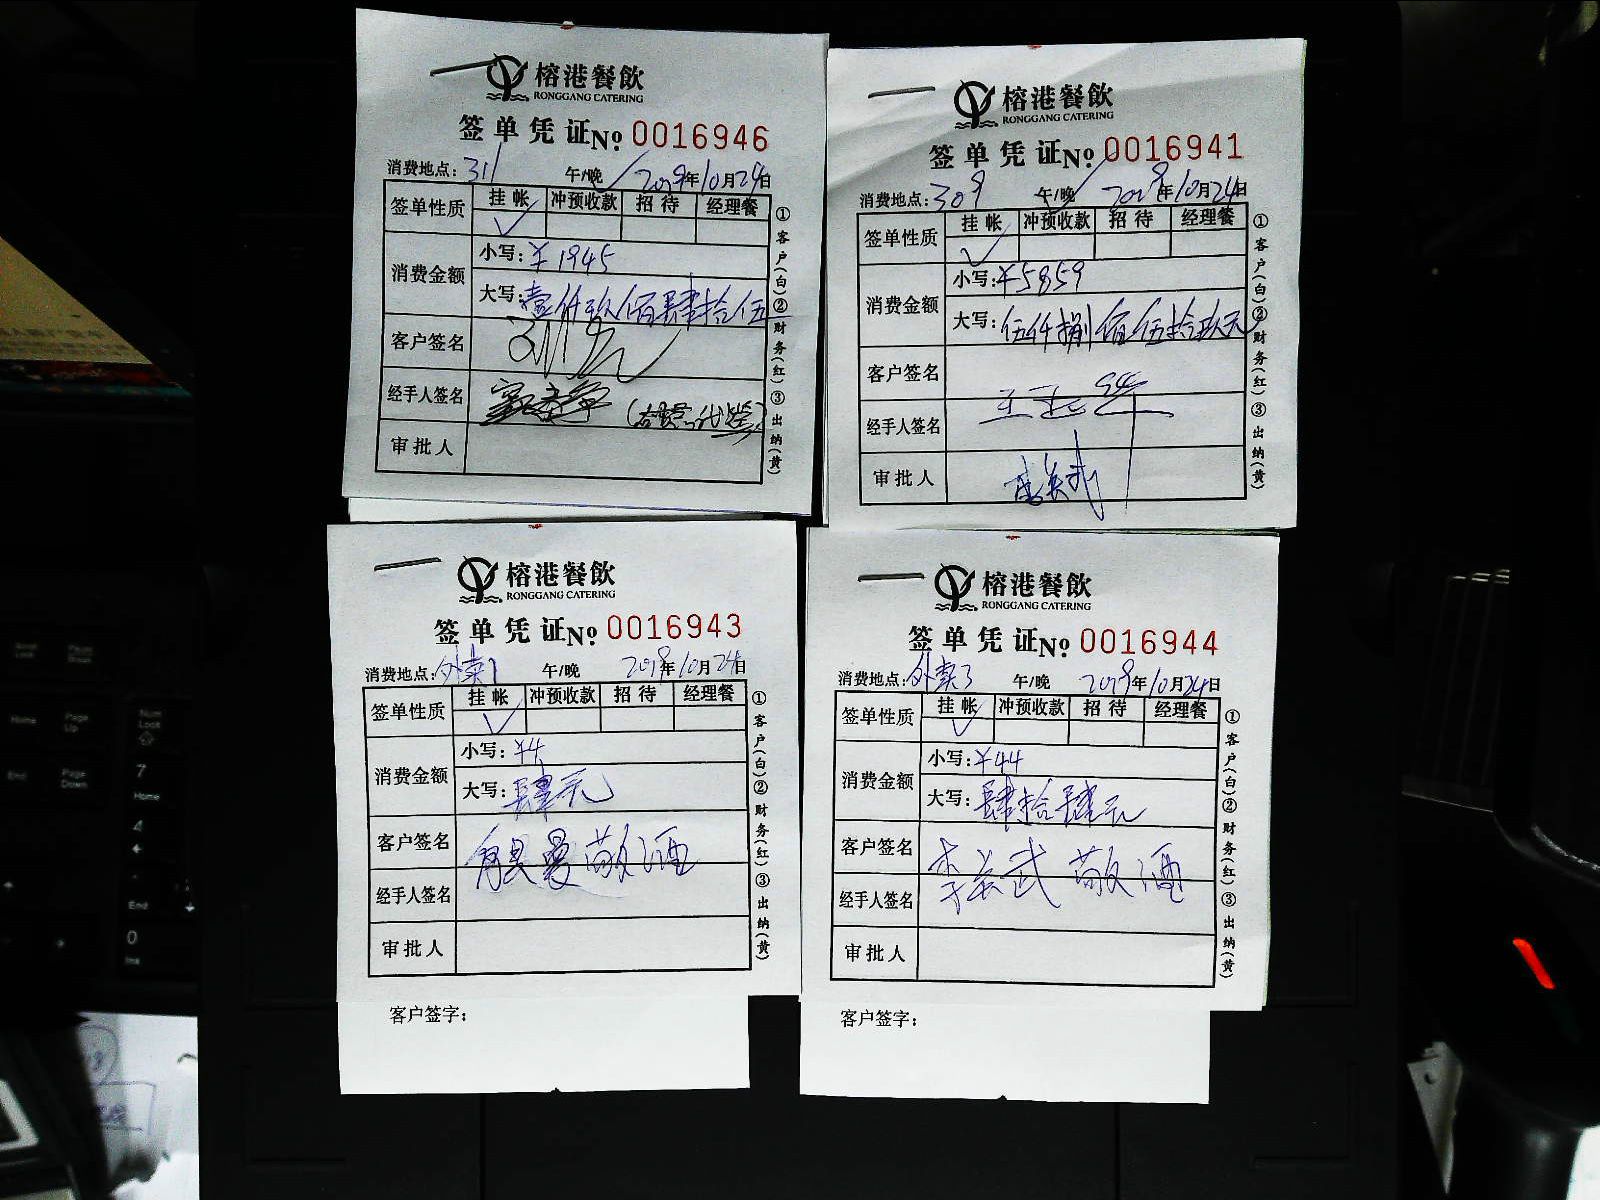 榕港餐飲
RONGGANG CATERING
签单凭证 No 0016946
消费地点: 311 午/晚 2019年10月24日
签单性质 挂帐 冲预收款 招待 经理餐
✓
消费金额 小写: ¥1945
大写: 壹仟玖佰肆拾伍
客户签名
经手人签名
审批人
①客户(白)②财务(红)③出纳(黄)
榕港餐飲
RONGGANG CATERING
签单凭证 No 0016941
消费地点: 309 午/晚 2019年10月24日
签单性质 挂帐 冲预收款 招待 经理餐
✓
消费金额 小写: ¥5859
大写: 伍仟捌佰伍拾玖元
客户签名
经手人签名
审批人
①客户(白)②财务(红)③出纳(黄)
榕港餐飲
RONGGANG CATERING
签单凭证 No 0016943
消费地点: 外卖1 午/晚 2019年10月24日
签单性质 挂帐 冲预收款 招待 经理餐
✓
消费金额 小写: ¥4
大写: 肆元
客户签名 敬酒
经手人签名
审批人
①客户(白)②财务(红)③出纳(黄)
客户签字:
榕港餐飲
RONGGANG CATERING
签单凭证 No 0016944
消费地点: 外卖3 午/晚 2019年10月24日
签单性质 挂帐 冲预收款 招待 经理餐
✓
消费金额 小写: ¥44
大写: 肆拾肆元
客户签名 敬酒
经手人签名
审批人
①客户(白)②财务(红)③出纳(黄)
客户签字: